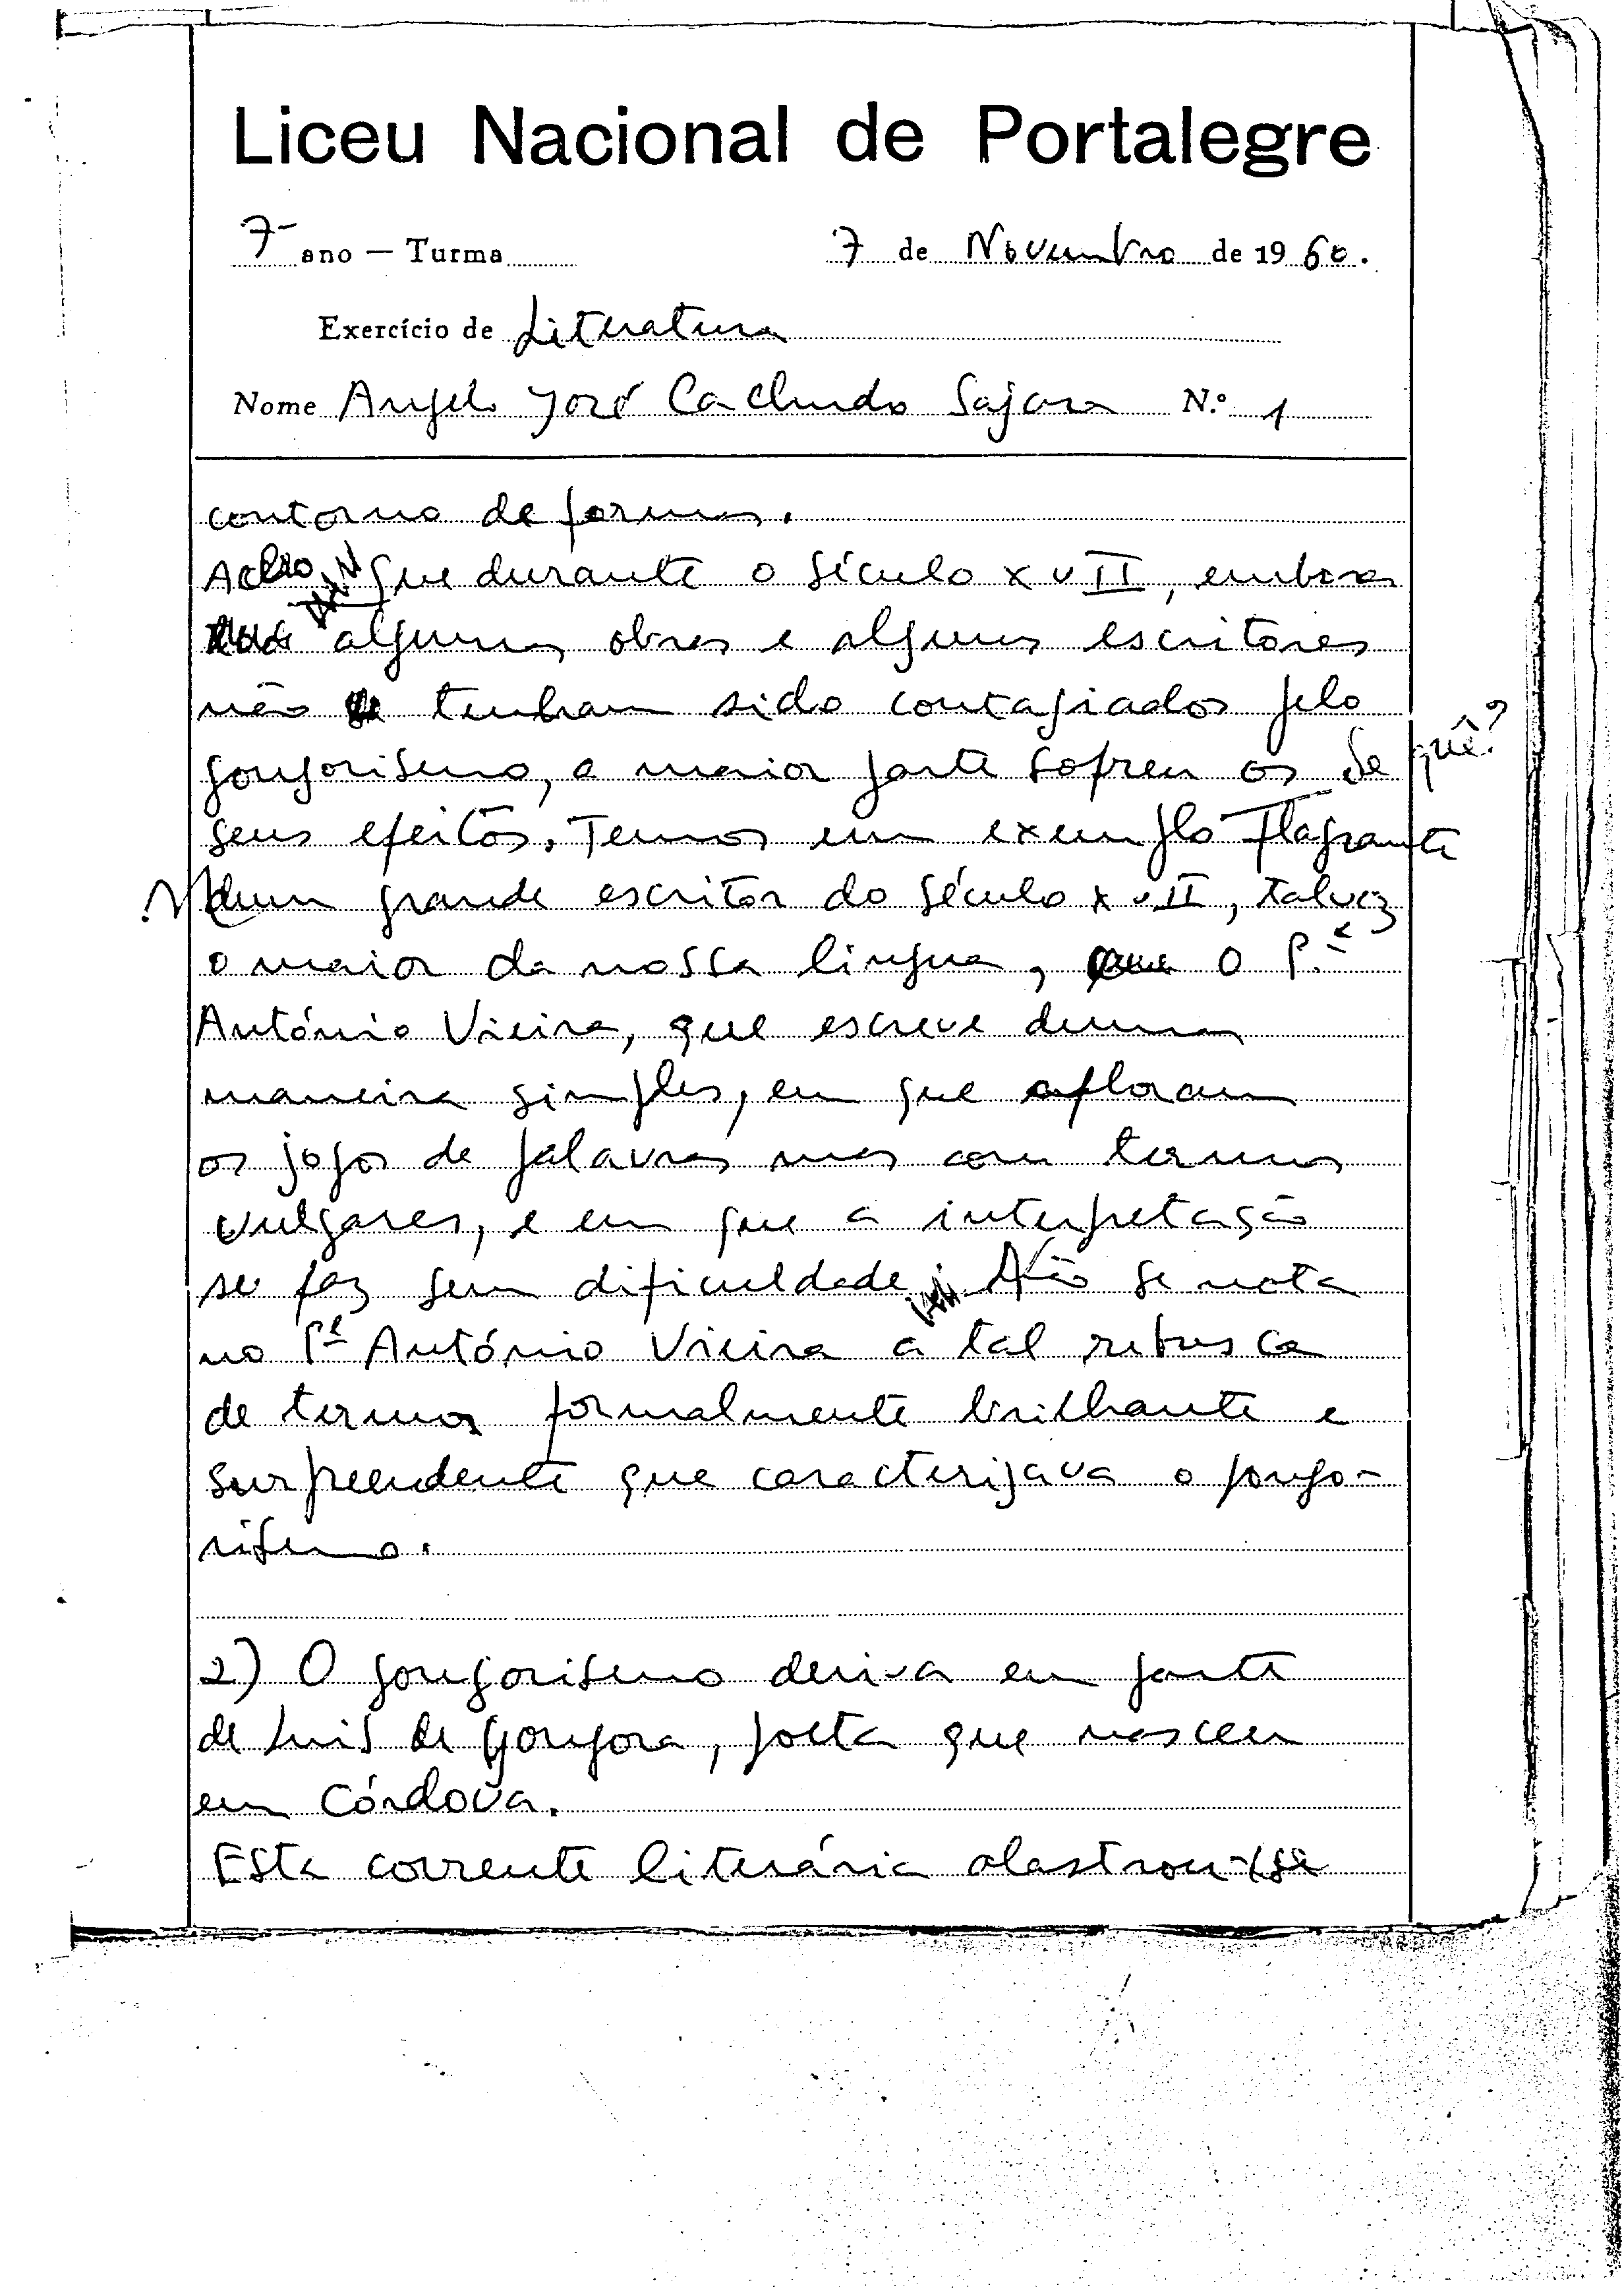 Liceu Nacional de Portalegre
7º ano — Turma
7 de Novembro de 1960.
Exercício de Literatura
Nome Angelo José Cachudo Sajara N.º 1
contorno de formas.
Acho que durante o século XVII, embora
algumas obras e alguns escritores
não tenham sido contagiados pelo
gongorismo, a maior parte sofreu os de quê?
seus efeitos. Temos um exemplo flagrante
Num grande escritor do século XVII, talvez
o maior da nossa lingua, o P.e
António Vieira, que escreve duma
maneira simples, em que afloram
os jogos de palavras mas com termos
vulgares, e em que a interpretação
se faz sem dificuldade. Não se nota
no Pe António Vieira a tal rebusca
de termos formalmente brilhante e
surpreendente que caracterizava o gongo-
rismo.
2) O gongorismo deriva em parte
de Luis de Gongora, poeta que nasceu
em Córdova.
Esta corrente literária alastrou-se